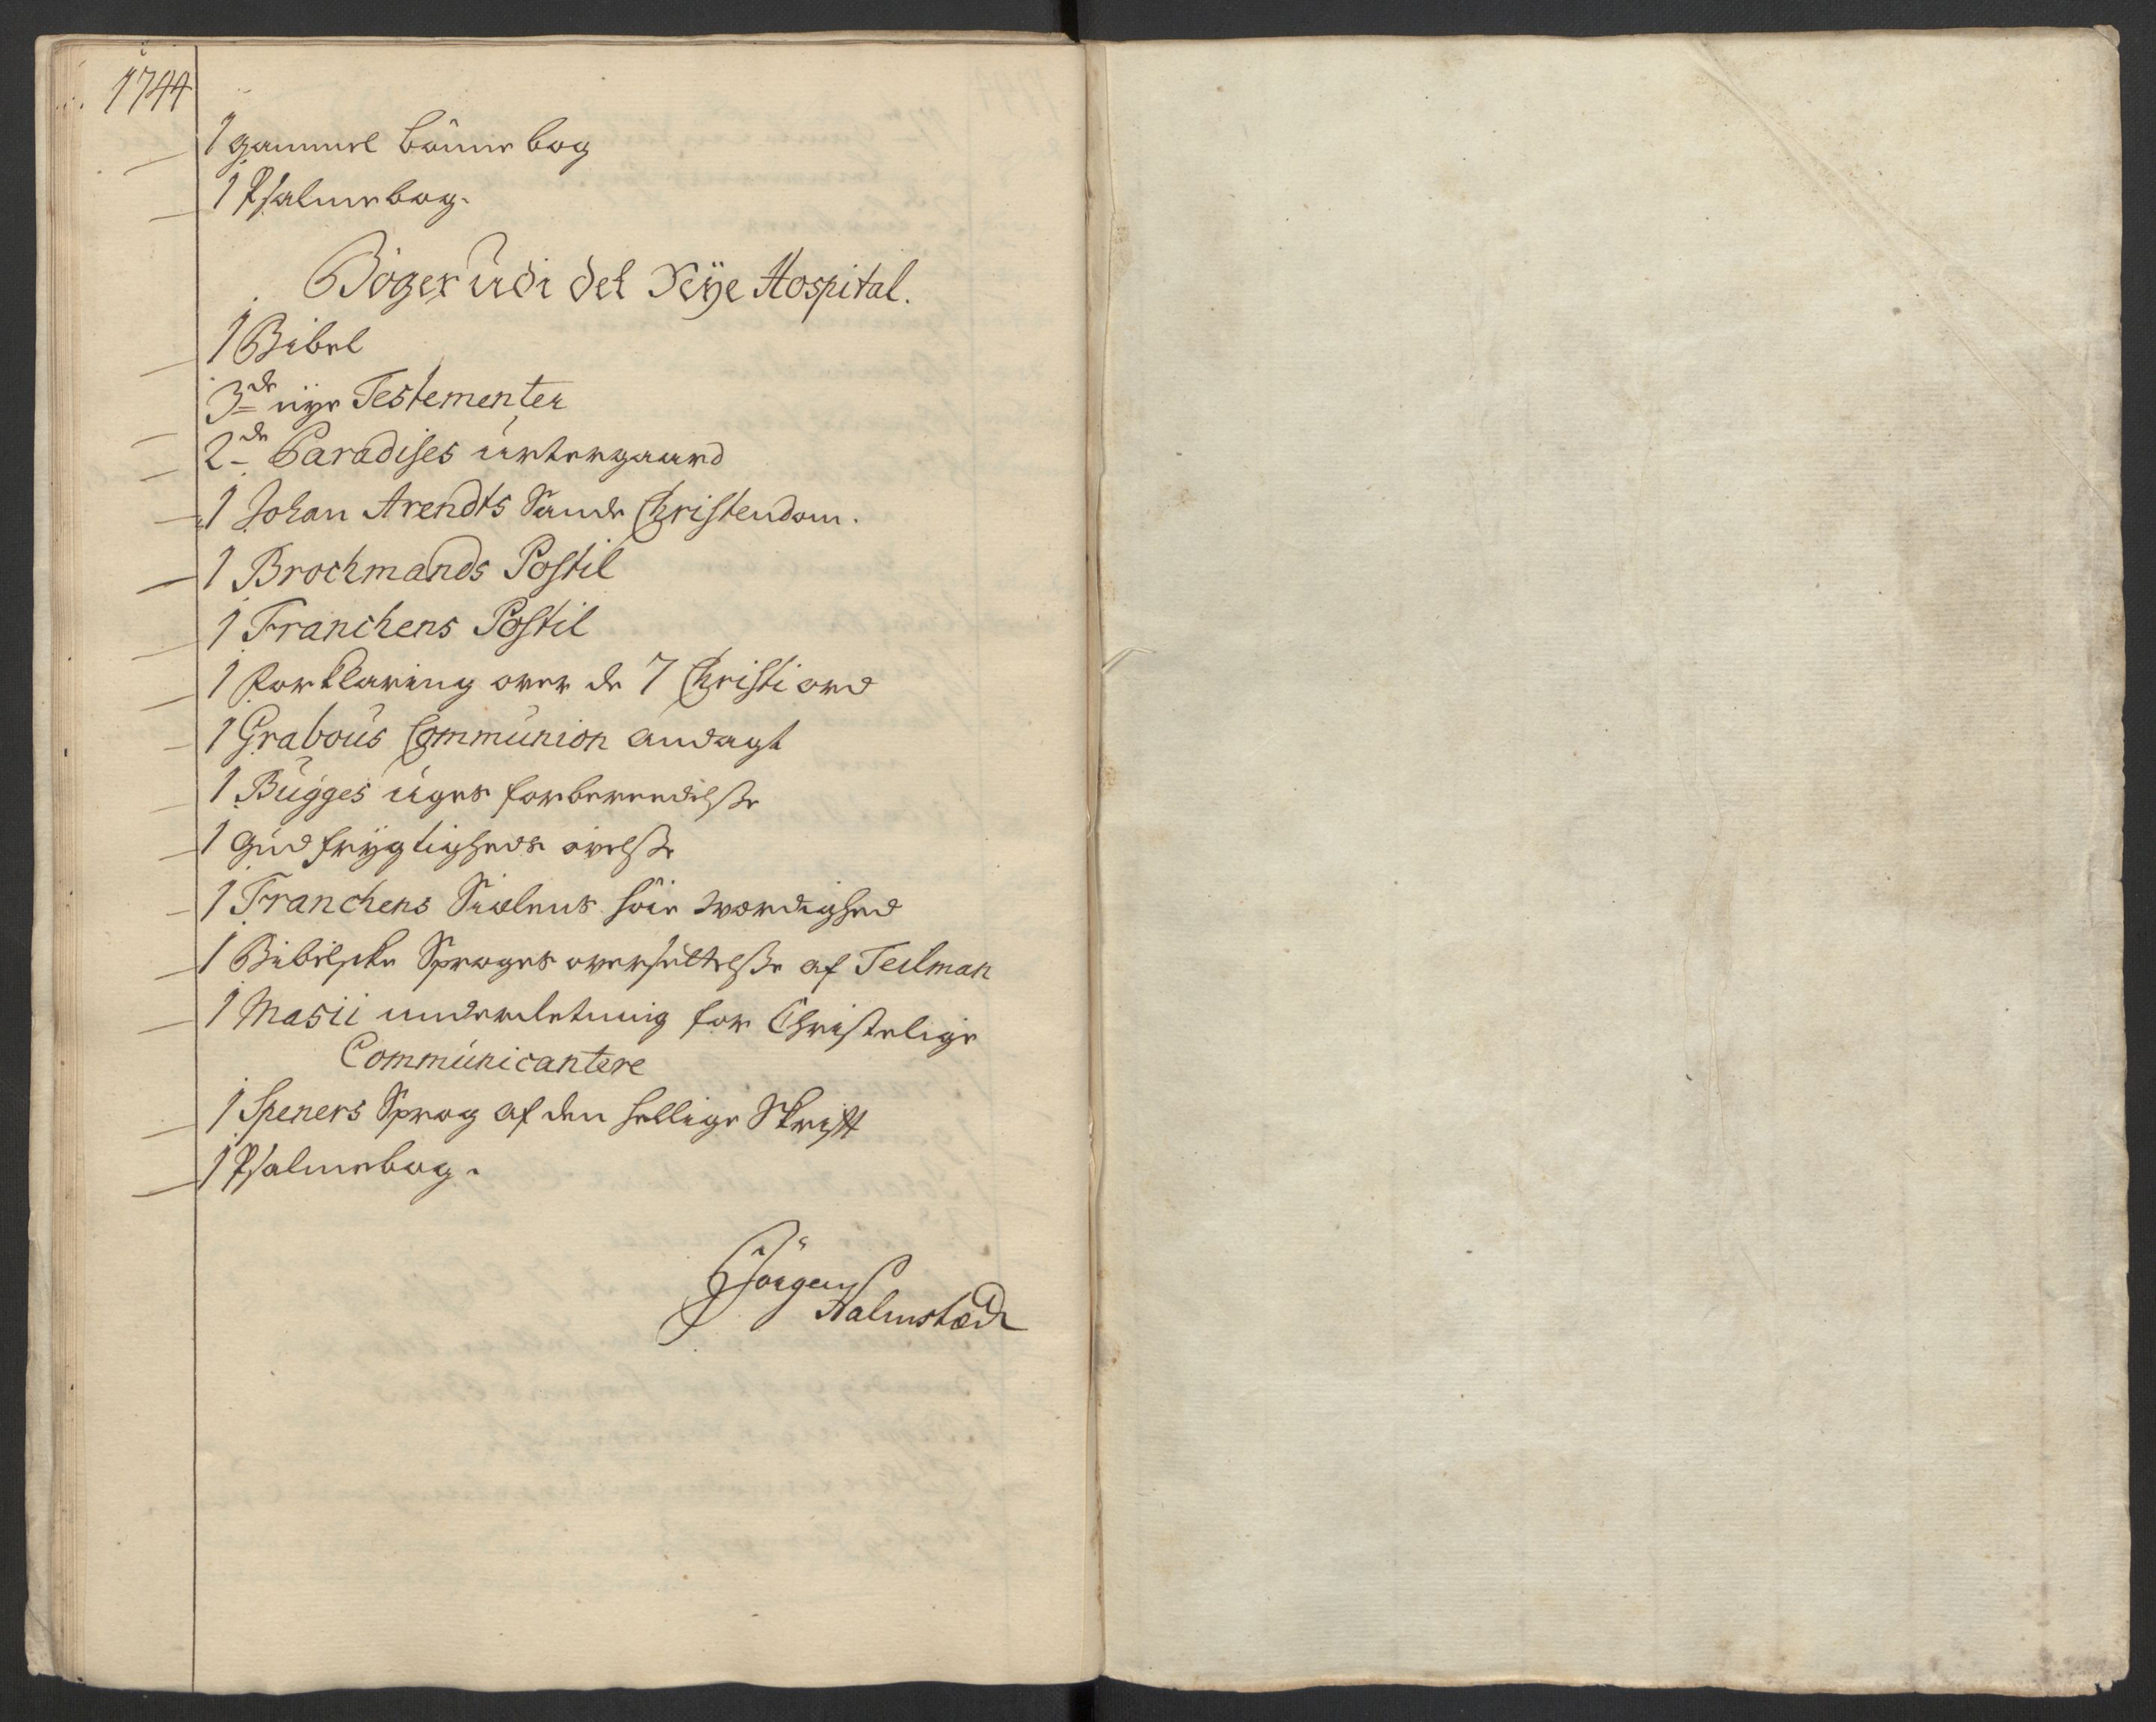 1744
1 gammel bönne bog
1 Psalmebog.
Böger udi det Nÿe Hospital.
1 Bibel
3de nÿe Testementer
2de Paradises urtergaard
1 Johan Arendts Sande Christendom.
1 Brochmands Postil
1 Franchens Postil
1 Forklaring over de 7 Christi ord
1 Grabous Communion andagt
1 Bugges uges forbereedelsse
1 Gudfrÿgtigheds övelsse
1 Franchens Siælens höie værdighed
1 Bibelske Sproges oversættelsse af Teilman
1 Masii underretning for Christelige
Communicantere
1 Speners Sprog af den hellige Skrift
1 Psalmebog.
Jörgen
Halmstæd